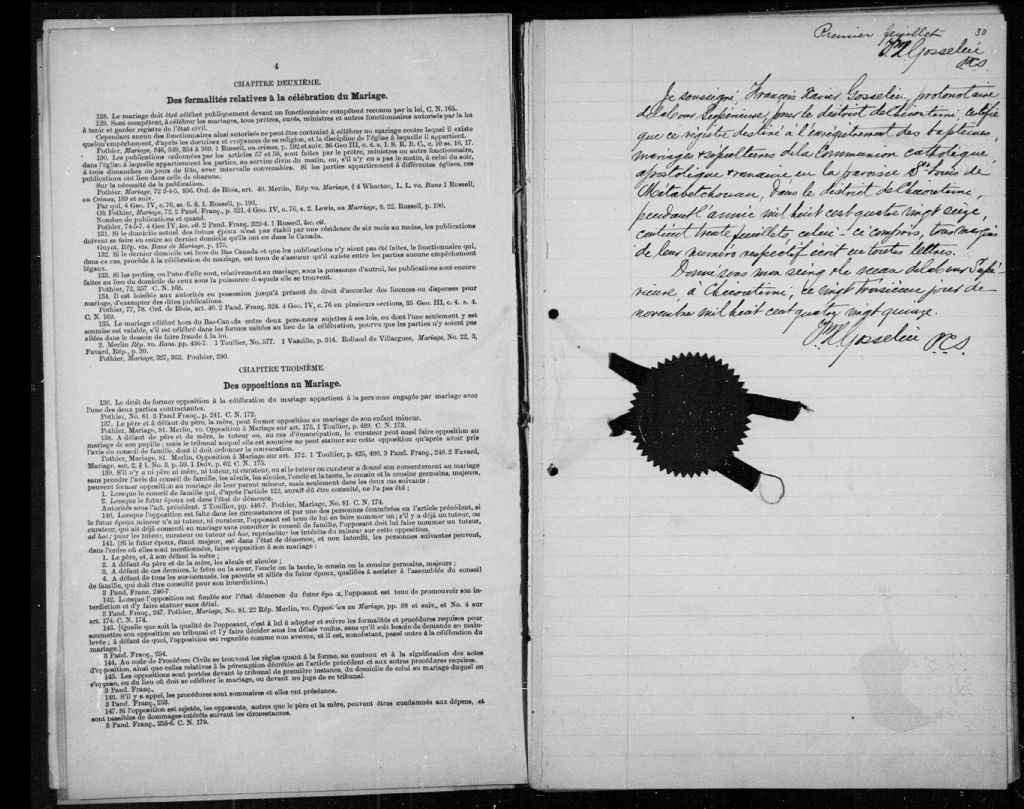 4
CHAPITRE DEUXIÈME.
Des formalités relatives à la célébration du Mariage.
128. Le mariage doit être célébré publiquement devant un fonctionnaire compétent reconnu par la loi, C. N. 165.
129. Sont compétent, à célébrer les mariages, tous prêtres, curés, ministres et autres fonctionnaires autorisés par la loi
à tenir et garder registre de l'état civil.
Cependant aucun des fonctionnaires ainsi autorisés ne peut être contraint à célébrer un mariage contre lequel il existe
quelqu'empêchement, d'après les doctrines et croyances de sa religion, et la discipline de l'église à laquelle il appartient.
Pothier, Mariage, 346, 349, 354 à 360. 1 Russell, on crimes, p. 192 et suiv. 36 Geo III, c. 4 s. 1. S. R. B. C., c. 20 ss. 16, 17.
130. Les publications ordonnées par les articles 57 et 58, sont faites par le prêtre, ministre ou autre fonctionnaire,
dans l'église à laquelle appartiennent les parties, au service divin du matin, ou, s'il n'y en a pas le matin, à celui du soir,
à trois dimanches ou jours de fête, avec intervalle convenables. Si les parties appartiennent à différentes églises, ces
publications ont lieu dans celle de chacune.
Sur la nécessité de la publication.
Pothier, Mariage, 72 3-4-5, 356. Ord. de Blois, art. 40. Merlin, Rép vo. Mariage, § 4 Wharton, L. L. vo. Bans 1 Russell,
on Crimes, 189 et suiv.
Par qui, 4 Geo. IV, c. 76, ss. 6. 8. 1. Russell, p. 193.
Où Pothier, Mariage, 72. 2 Pand. Franç., p. 321. 4 Geo. IV, c. 76, s. 2. Lewis, on Marriage, 8, 22. Russell, p. 190.
Nombre de publications et quand.
Pothier, 74-5-7. 4 Geo IV, loc. cit. 2 Pand. Franç. 322-4. 1 Russell, loc. cit.
131. Si le domicile actuel des futurs époux n'est pas établi par une résidence de six mois au moins, les publications
doivent se faire en outre au dernier domicile qu'ils ont eu dans le Canada.
Guyot, Rép. vis. Bans de Mariage, p. 175.
132. Si le dernier domicile est hors du Bas Canada et que les publications n'y aient pas été faites, le fonctionnaire qui,
dans ce cas, procède à la célébration du mariage, est tenu de s'assurer qu'il existe entre les parties aucune empêchement
légaux.
133. Si les parties, ou l'une d'elle sont, relativement au mariage, sous la puissance d'autrui, les publications sont encore
faites au lieu du domicile de ceux sous la puissance desquels elle se trouvent.
Pothier, 72, 357. C. N. 168.
134. Il est loisible aux autorités en possession jusqu'à présent du droit d'accorder des licences ou dispenses pour
mariage, d'exempter des dites publications.
Pothier, 77, 78. Ord. de Blois, art. 40. 2 Pand. Franç. 324. 4 Geo IV, c. 76 en plusieurs sections, 35 Geo, III, c. 4. s. 4.
C. N. 169.
135. Le mariage célébré hors du Bas-Canada entre deux personnes sujettes à ses lois, ou dont l'une seulement y est
soumise est valable, s'il est célébré dans les formes usitées au lieu de la célébration, pourvu que les parties n'y soient pas
allées dans le dessein de faire fraude à la loi.
2. Merlin Rép. vo. Bans pp. 436-7. 1 Toullier, No. 577. 1 Vazeille, p. 314. Rolland de Villargues, Mariage, No. 22, 3,
Favard, Rép., p. 30.
Pothier, Mariage, 327, 363. Pouhier, 390.
CHAPITRE TROISIÈME.
Des oppositions au Mariage.
136. Le droit de former opposition à la célébration du mariage appartient à la personne engagée par mariage avec
l'une des deux parties contractantes.
Pothier, No. 81. 3 Pand Franç., p. 241. C. N. 172.
137. Le père et à défaut du père, la mère, peut former opposition au mariage de son enfant mineur.
Pothier, Mariage, 81. Merlin, vo. Opposition à Mariage sur art. 173. 1 Toullier, p. 489. C. N. 173.
138. A défaut de père et de mère, le tuteur ou, au cas d'émancipation, le curateur peut aussi faire opposition au
mariage de son pupille ; mais le tribunal auquel elle est soumise ne peut statuer sur cette opposition qu'après avoir pris
l'avis du conseil de famille, dont il doit ordonner la convocation.
Pothier, Mariage, 81. Merlin, Opposition à Mariage sur art. 172. 1 Toullier, p. 425, 490. 3 Pand. Franç., 248. 2 Favard,
Mariage, sec. 2, § 1, No. 3, p. 59. 1 Delv, p. 62. C. N. 175.
139. S'il n'y a ni père ni mère, ni tuteur, ni curateur, ou si le tuteur ou curateur a donné son consentement au mariage
sans prendre l'avis du conseil de famille, les aïeuls, les aïeules, l'oncle et la tante, le cousin et la cousine germains, majeurs,
peuvent former opposition au mariage de leur parent mineur, mais seulement dans les deux cas suivants :
1. Lorsque le conseil de famille qui, d'après l'article 122, aurait dû être consulté, ne l'a pas été ;
2. Lorsque le futur époux est dans l'état de démence.
Autorités sous l'art. précédent. 2 Toullien, pp. 446-7. Pothier, Mariage, No. 81. C. N. 174.
140. Lorsque l'opposition est faite dans les circonstances et par une des personnes énumérées en l'article précédent, si
le futur époux mineur n'a ni tuteur, ni curateur, l'opposant est tenu de lui en faire nommer un ; s'il y a déjà un tuteur, ou
curateur, qui ait déjà consenti au mariage sans consulter le conseil de famille, l'opposant doit lui faire nommer un tuteur,
ad hoc ; pour les tuteur, curateur ou tuteur ad hoc, représenter les intérêts du mineur sur cette opposition.
141. (Si le futur époux, étant majeur, est dans l'état de démence, et non interdit, les personnes suivantes peuvent,
dans l'ordre où elles sont mentionnées, faire opposition à son mariage :
1. Le père, et, à son défaut la mère ;
2. A défaut du père et de la mère, les aïeuls et aïeules ;
3. A défaut de ces derniers, le frère ou la sœur, l'oncle ou la tante, le cousin ou la cousine germains, majeurs ;
4. A défaut de tous les sus-nommés, les parents et alliés du futur époux, qualifiés à assister à l'assemblée du conseil
de famille, qui doit être consulté pour son interdiction.)
3 Pand. Franc. 246-7.
142. Lorsque l'opposition est fondée sur l'état démence du futur époux, l'opposant est tenu de promouvoir son in-
terdiction et d'y faire statuer sans délai.
3 Pand. Franç., 247. Pothier, Mariage, No. 81. 22 Rép. Merlin, vo. Opposition au Mariage, pp. 88 et suiv., et No. 4 sur
art. 174. C. N. 174.
143. [Quelle que soit la qualité de l'opposant, c'est à lui à adopter et suivre les formalités et procédures requises pour
soumettre son opposition au tribunal et l'y faire décider sous les délais voulus, sans qu'il soit besoin de demande en main-
levée ; à défaut de quoi, l'opposition est regardée comme non avenue, et il est, nonobstant, passé outre à la célébration du
mariage.]
3 Pand. Franç., 254.
144. Au code de Procédure Civile se trouvent les règles quant à la forme, au contenu et à la signification des actes
d'opposition, ainsi que celles relatives à la péremption décrétée en l'article précédent et aux autres procédures requises.
145. Les oppositions sont portées devant le tribunal de première instance, du domicile de celui au mariage duquel on
s'oppose, ou du lieu où doit se célébrer le mariage, ou devant un juge de ce tribunal.
3 Pand. Franç.,
146. S'il y a appel, les procédures sont sommaires et elles ont préséance.
3 Pand. Franç., 253.
147. Si l'opposition est rejetée, les opposants, autres que le père et la mère, peuvent être condamnés aux dépens, et
sont passibles de dommages-intérêts suivant les circonstances.
3 Pand. Franç., 255-6. C. N. 179.
Premier feuillet 30
F X Gosselin
P.C.S.
Je soussigné, François Xavier Gosselin, protonotaire
de la Cour Supérieure, pour le district de Chicoutimi, certifie
que ce registre destiné à l'enrégistrement des baptêmes
mariages & sépultures de la Communion catholique,
apostolique & romaine en la paroisse St Louis de
Métabetchouan, dans le district de Chicoutimi,
pendant l'année mil huit cent quatre vingt seize,
contient trente feuillets, celui-ci compris, tous marqués
de leur numéro respectif écrit en toutes lettres.
Donné sous mon seing & le sceau de la Cour Supé-
rieure, à Chicoutimi, ce vingt troisième jour de
novembre mil huit cent quatre vingt quinze.
F. X. Gosselin P.C.S.